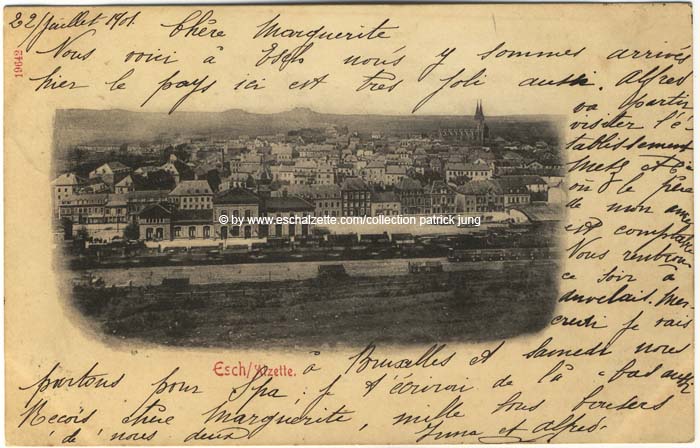 22 Juillet 1901. Chère Marguerite
Nous voici à Esch nous y sommes arrivés
hier le pays ici est très joli aussi. Alfred
va partir
visiter l'é-
tablissement
Metz et
où le frère
de mon ami
est comptable
Nous
ce soir à
auvelais. Mer-
credi je vais
à Bruxelles et Samedi nous
partons pour Spa; je t'écrirai de là
Reçois chère Marguerite, mille bons baisers
de nous deux
et Alfred.
19642
© by www.eschalzette.com/collection patrick jung
Esch/Alzette.